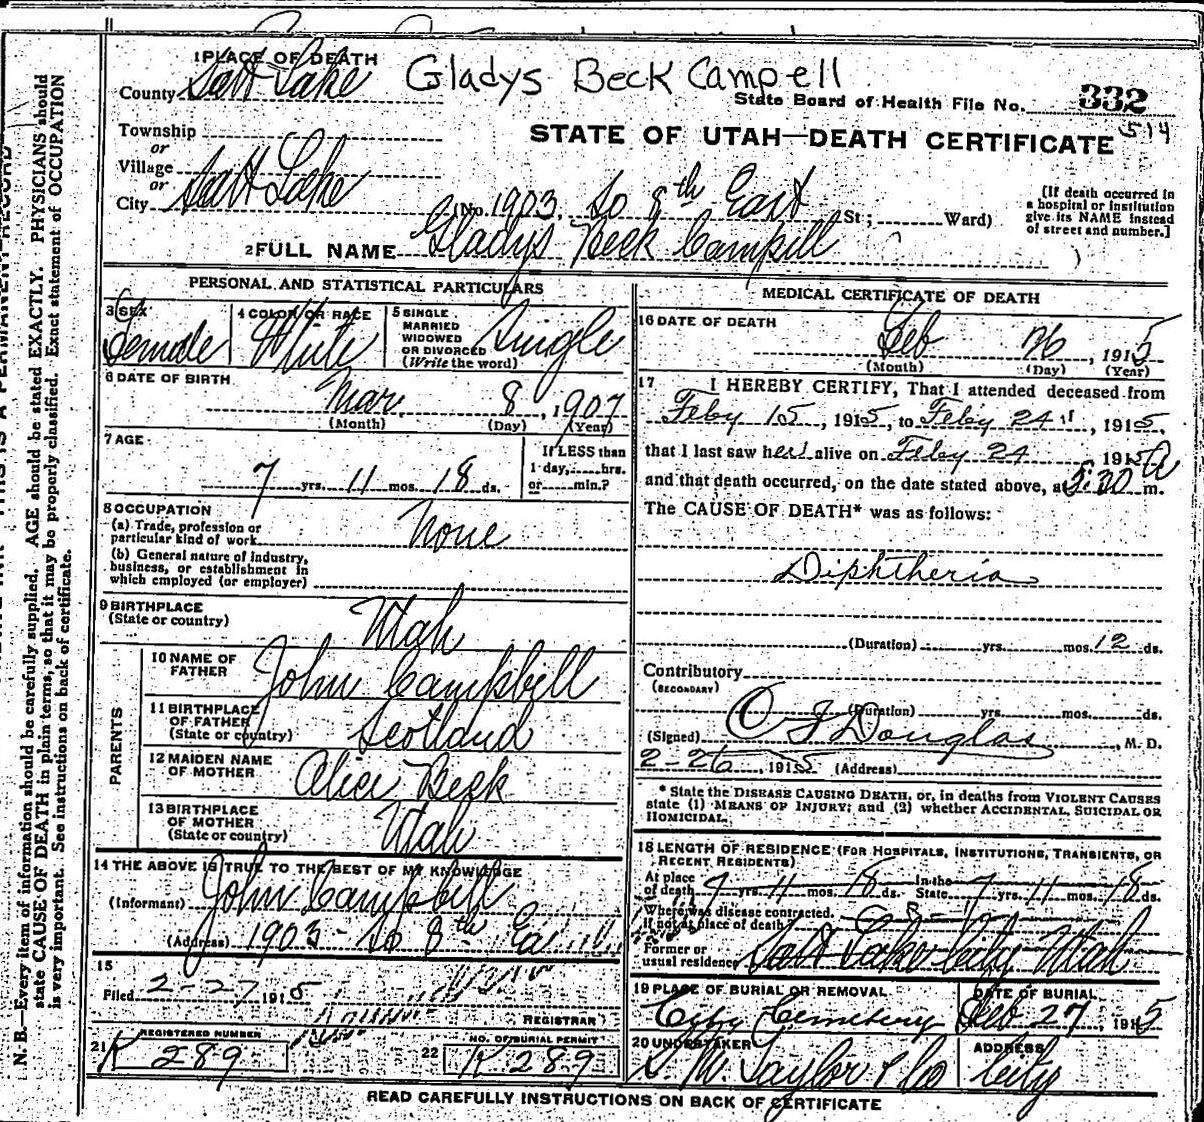 1 PLACE OF DEATH
Gladys Beck Campell
County Salt Lake
State Board of Health File No. 332
514
STATE OF UTAH—DEATH CERTIFICATE
Township
or
Village
or
City Salt Lake
(No. 1903. So 8th East St; Ward)
[If death occurred in a hospital or institution give its NAME instead of street and number.]
2 FULL NAME Gladys Beck Campill
PERSONAL AND STATISTICAL PARTICULARS
3 SEX Female
4 COLOR OR RACE White
5 SINGLE MARRIED WIDOWED OR DIVORCED (Write the word) Single
6 DATE OF BIRTH
Mar 8, 1907
(Month) (Day) (Year)
7 AGE
7 yrs. 11 mos. 18 ds.
If LESS than 1 day, hrs. or min.?
8 OCCUPATION
(a) Trade, profession or particular kind of work None
(b) General nature of industry, business, or establishment in which employed (or employer)
9 BIRTHPLACE (State or country) Utah
PARENTS
10 NAME OF FATHER John Campbell
11 BIRTHPLACE OF FATHER (State or country) Scotland
12 MAIDEN NAME OF MOTHER Alice Beck
13 BIRTHPLACE OF MOTHER (State or country) Utah
14 THE ABOVE IS TRUE TO THE BEST OF MY KNOWLEDGE
(Informant) John Campbell
(Address) 1903 - So 8th Ea
15
Filed 2-27 1915
REGISTRAR
REGISTERED NUMBER
21 K 289
NO. OF BURIAL PERMIT
22 K 289
MEDICAL CERTIFICATE OF DEATH
16 DATE OF DEATH
Feb 26, 1915
(Month) (Day) (Year)
17 I HEREBY CERTIFY, That I attended deceased from
Feby 15, 1915, to Feby 24, 1915,
that I last saw her alive on Feby 24 1915
and that death occurred, on the date stated above, at 5:20 A m.
The CAUSE OF DEATH* was as follows:
Diphtheria
(Duration) yrs. mos. 12 ds.
Contributory
(SECONDARY)
(Duration) yrs. mos. ds.
(Signed) O J Douglas, M. D.
2-26, 1915 (Address)
* State the DISEASE CAUSING DEATH, or, in deaths from VIOLENT CAUSES
state (1) MEANS OF INJURY; and (2) whether ACCIDENTAL, SUICIDAL OR
HOMICIDAL.
18 LENGTH OF RESIDENCE (FOR HOSPITALS, INSTITUTIONS, TRANSIENTS, OR
RECENT RESIDENTS)
At place of death 7 yrs. 11 mos. 18 ds. In the State 7 yrs. 11 mos. 18 ds.
Where was disease contracted.
If not at place of death?
Former or usual residence Salt Lake City Utah
19 PLACE OF BURIAL OR REMOVAL City Cemetery
DATE OF BURIAL Feb 27, 1915
20 UNDERTAKER S. M. Taylor & Co
ADDRESS City
READ CAREFULLY INSTRUCTIONS ON BACK OF CERTIFICATE
N. B.—Every item of information should be carefully supplied. AGE should be stated EXACTLY. PHYSICIANS should
state CAUSE OF DEATH in plain terms, so that it may be properly classified. Exact statement of OCCUPATION
is very important. See instructions on back of certificate.